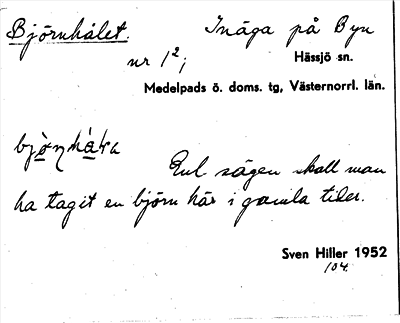 Björnhålet. Inäga på Byn
nr 1²;
Hässjö sn.
Medelpads ö. doms. tg, Västernorrl. län.
Enl sägen skall man
ha tagit en björn här i gamla tider.
Sven Hiller 1952
104.